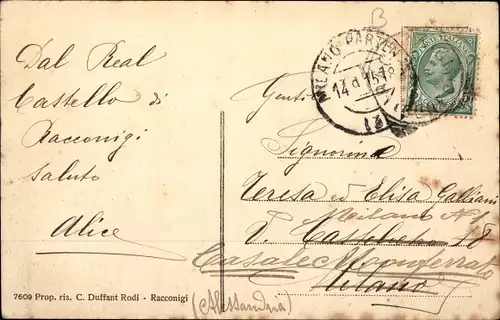 B
Dal Real
Castello di
Racconigi
saluto
Alice
MILANO PARTENZA
14
POSTE ITALIANE
Gent
Signorine
Teresa ed Elisa Galliani
Milano
V. Castelvetro 18
Casale Monferrato
Milano
(Alessandria)
7609 Prop. ris. C. Duffant Rodi - Racconigi